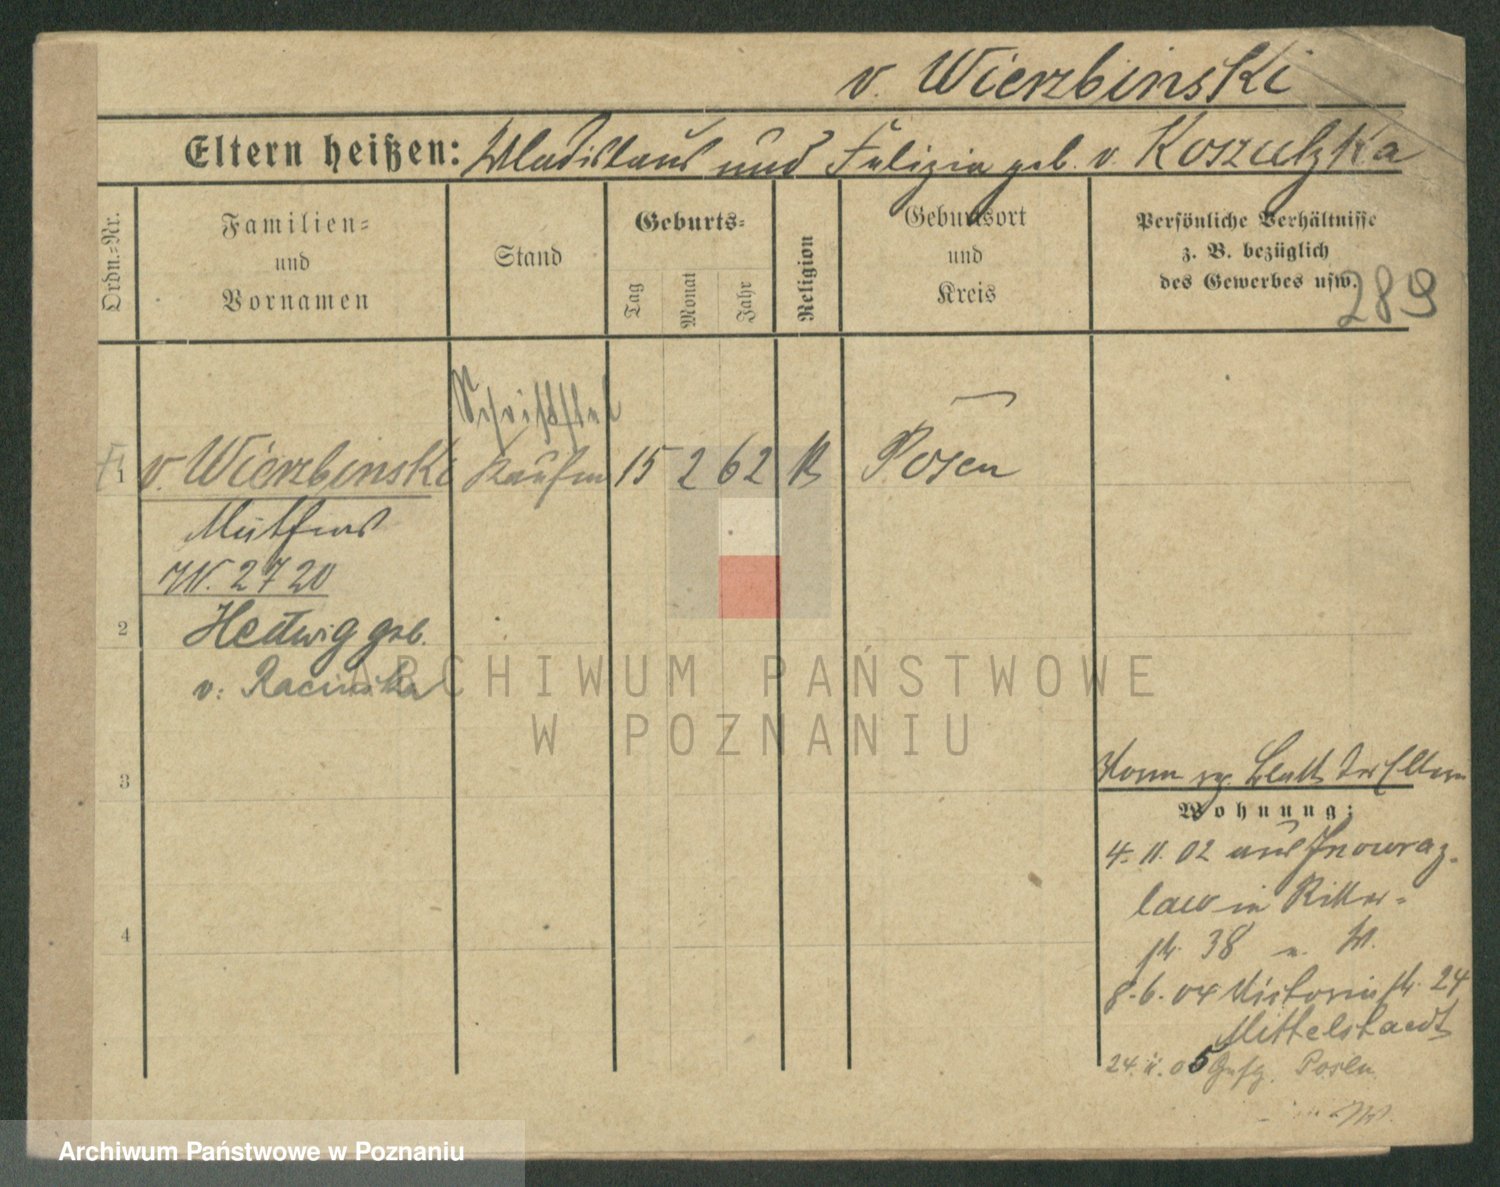 v. Wierzbinski
Eltern heißen: Wladislaus und Felizia geb. v Koszutzka
Ordn.=Nr.
Familien=
und
Vornamen
Stand
Geburts=
Tag
Monat
Jahr
Religion
Geburtsort
und
Kreis
Persönliche Verhältnisse
z. B. bezüglich
des Gewerbes usw.
289
Schriftstel
1 v. Wierzbinski Kaufm 15 2 62 K Posen
W. 2720
2 Hedwig geb.
v. Racinska
3
Blatt der Eltern
Wohnung:
4. 11. 02 aus Inowraz-
law in Ritter-
str. 38 W.
8. 6. 04 Victoriastr. 24
Mittelstaedt
4
24. 11. 05 Posen
ARCHIWUM PAŃSTWOWE
W POZNANIU
Archiwum Państwowe w Poznaniu